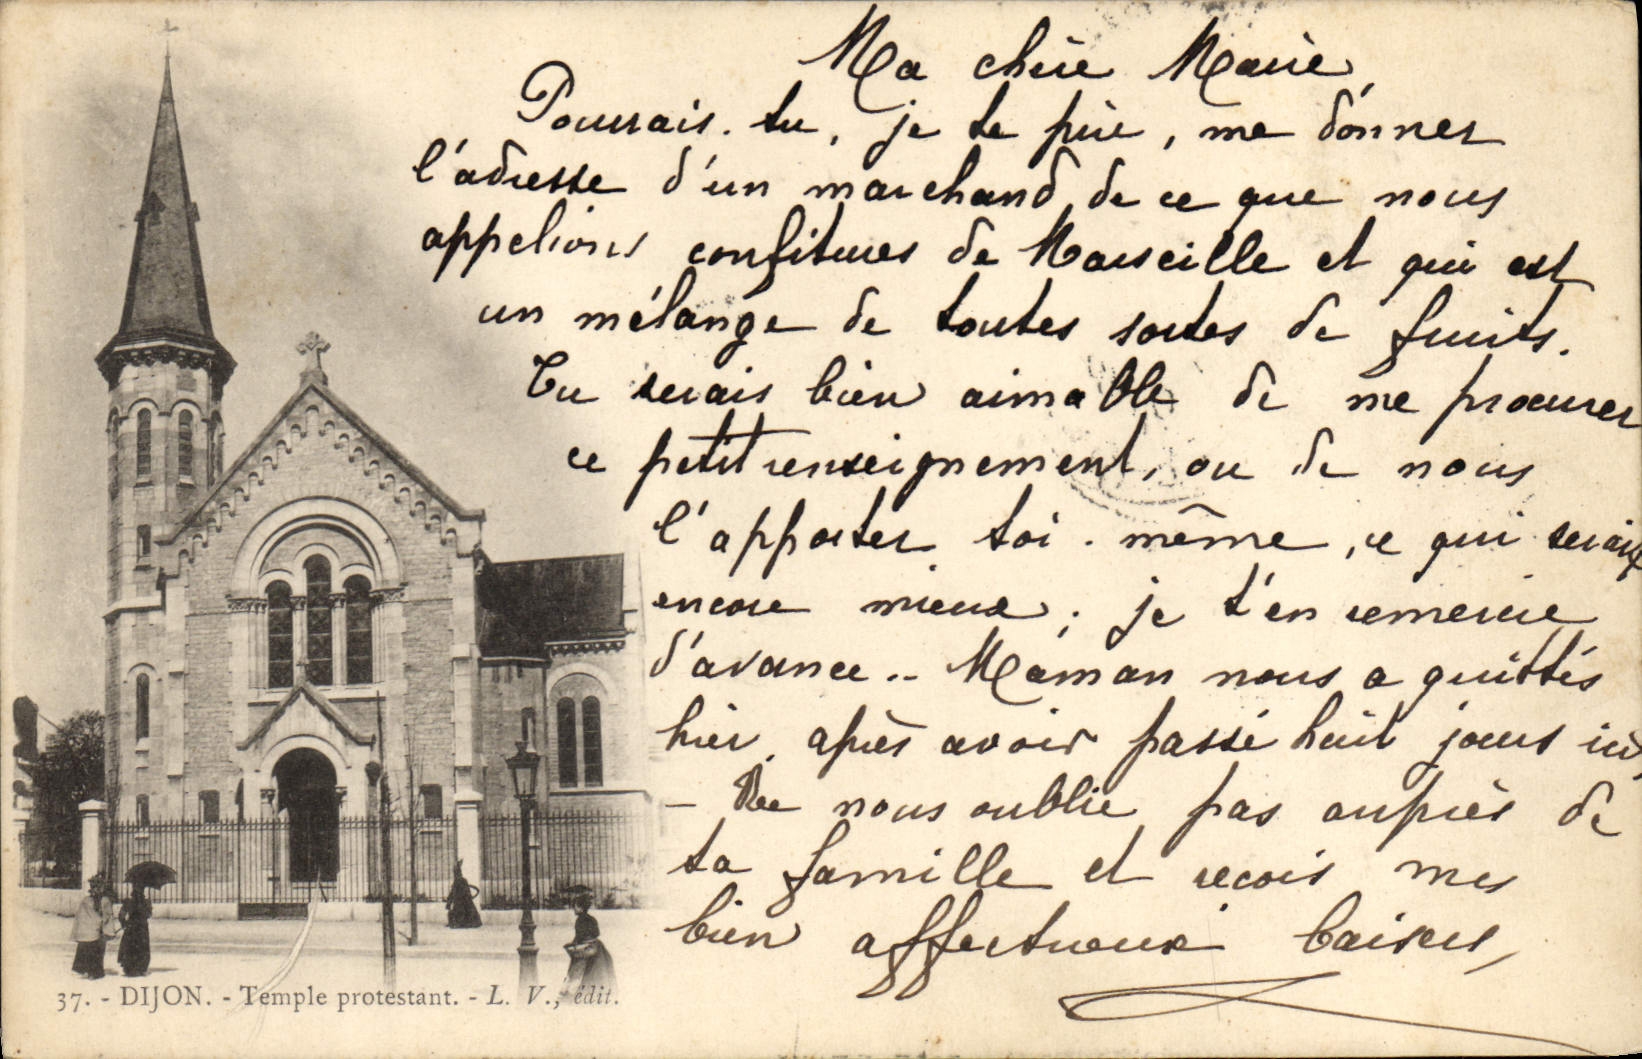 Ma chère Marie,
Pourrais-tu, je te prie, me donner
l'adresse d'un marchand de ce que nous
appelions confitures de Marseille et qui est
un mélange de toutes sortes de fruits.
Tu serais bien aimable de me procurer
ce petit renseignement, ou de nous
l'apporter toi-même, ce qui serait
encore mieux ; je t'en remercie
d'avance.. Maman nous a quittés
hier, après avoir passé huit jours ici,
- Ne nous oublie pas auprès de
ta famille et reçois mes
bien affectueux baisers,
37. - DIJON. - Temple protestant. - L. V., édit.